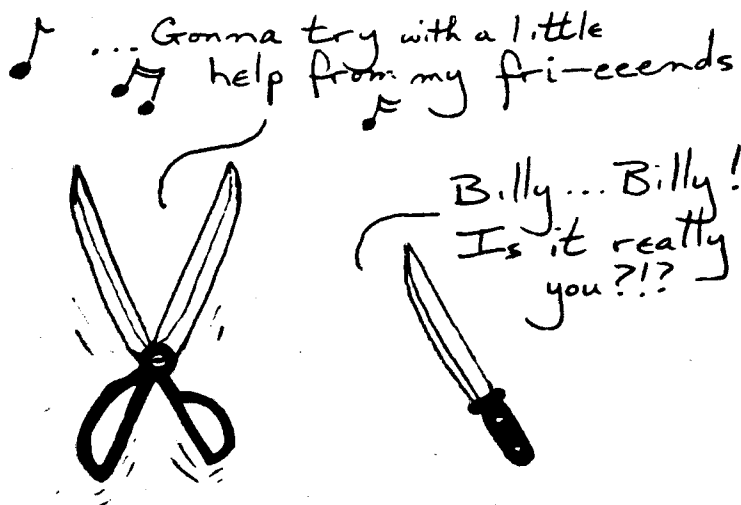 ...Gonna try with a little
help from my fri-eeends
Billy...Billy!
Is it really
you?!?